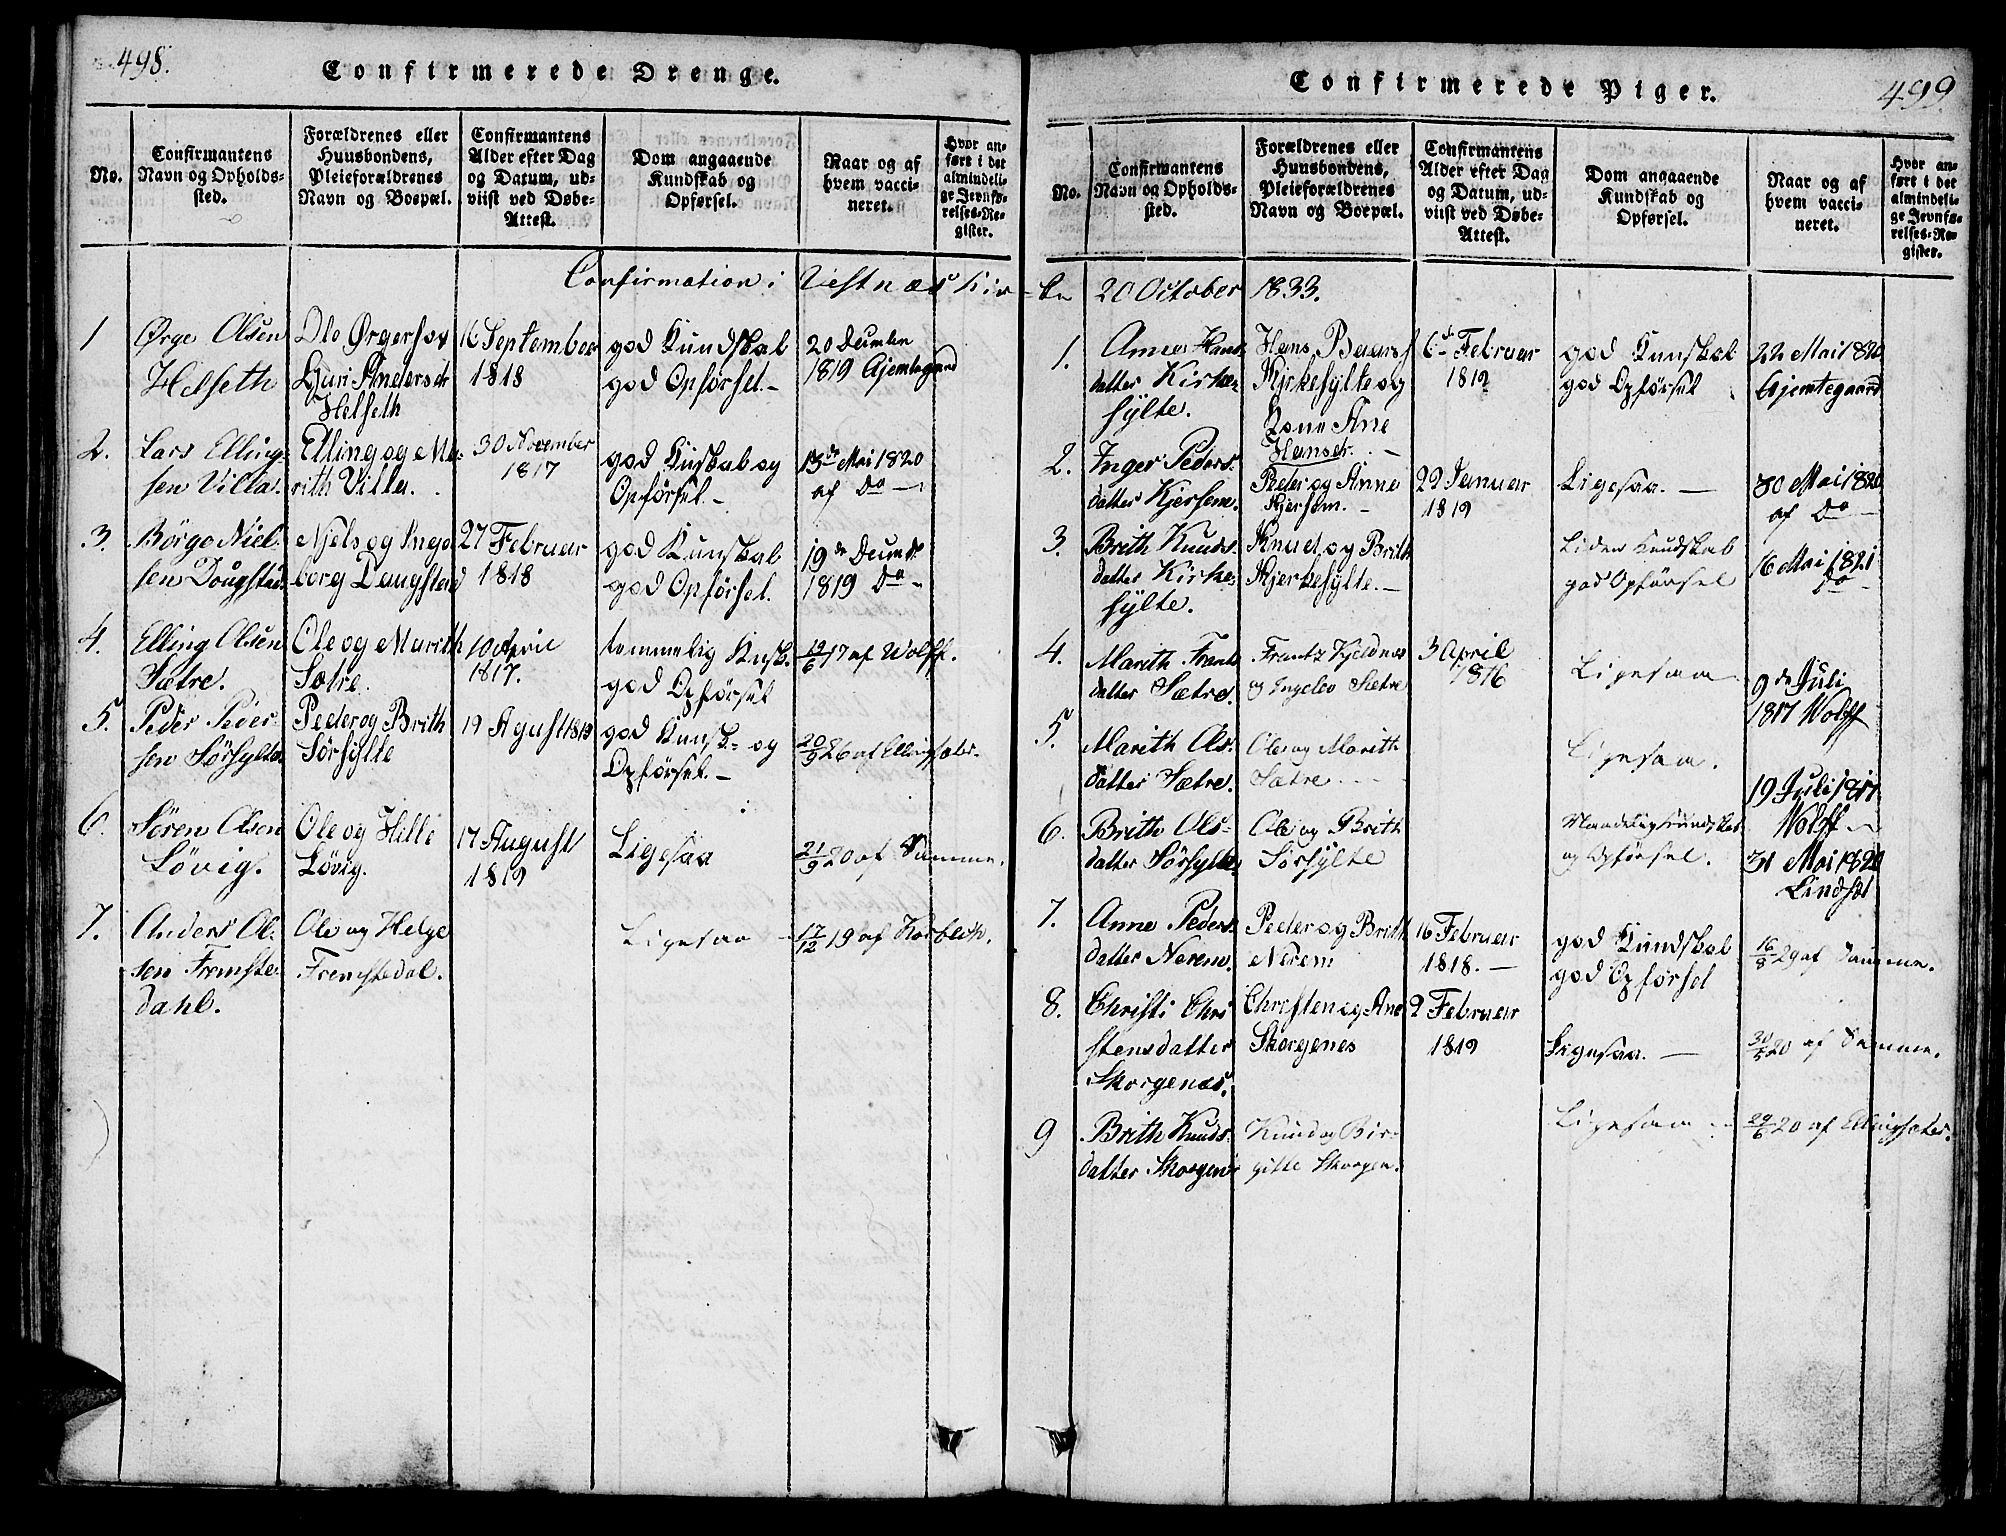 498.
Confirmerede Drenge.
No.
Confirmantens
Navn og Opholds-
sted.
Forældrenes eller
Huusbondens,
Pleieforældrenes
Navn og Boepæl.
Confirmantens
Alder efter Dag
og Datum, ud-
viist ved Døbe-
Attest.
Dom angaaende
Kundskab og
Opførsel.
Naar og af
hvem vacci-
neret.
Hvor an-
ført i det
almindeli-
ge Jevnfø-
relses-Re-
gister.
Confirmation i Vestnæs Kir-
1
Ørge Olsen
Helseth
Ole Ørgersøn
Guri Andersdr
Helseth
16 September
1818
god Kundskab
god Opførsel.-
20 Decemben
1819 Gjemtegaard
2.
Lars Elling-
sen Villa.
Elling og Ma-
rith Villa.
30 November
1817
god Kuskab og
Opførsel.-
15de Mai 1820
af Do -
3.
Børge Niel-
sen Dougstad
Njels og Inge-
borg Daugstad
27 Februar
1818
god Kunskab
god Opførsel.
19de Decembr
1819 Do -
4.
Elling Olsen
Sætre.
Ole og Marith
Sætre.
10 April
1817.
temmelig Kusk.
god Opførsel
19/6 17 af Wolff.
5.
Peder Peder-
sen Sørsylte
Peder og Brith
Sørsylte
19 Agust 1819
god Kunsk- og
Opførsel.-
20/9 26 af Ellingsæter.
6.
Søren Olsen
Løvig.
Ole og Helle
Løvig.
17 August
1819
Ligesaa
21/9 20 af Samme.
7.
Anders Ol-
sen Fremste-
dahl.
Ole og Helge
Fremstedal.
Ligesaa -
17/12 19 af Harbeth.
Confirmerede Piger.
499
No.
Confirmantens
Navn og Opholds-
sted.
Forældrenes eller
Huusbondens,
Pleieforældrenes
Navn og Boepæl.
Confirmantens
Alder efter Dag
og Datum, ud-
viist ved Døbe-
Attest.
Dom angaaende
Kundskab og
Opførsel.
Naar og af
hvem vacci-
neret.
Hvor an-
ført i det
almindeli-
ge Jevnfø-
relses-Re-
gister.
ke 20 October 1833.
1.
Anne Hans
datter Kirke-
sylte.
Hans
Kjrkesylte og
Kone Ane
Hansdr. -
6de Februar
1819
god Kunskab
god Opførsel
22 Mai 1820
Gjemtegaard
2.
Inger Peders-
datter Kjersem.
Peder og Anne
Kjersem. -
22 Januar
1819
Ligesaa. -
30 Mai 1820
af Do -
3.
Brith Knuds
datter Kirke-
sylte.
Knud og Brith
Kjerkesylte. -
Liden Kundskab
god Opførsel
16 Mai 1821
Do -
4.
Marith Frants
datter Sætre.
Frantz Kjeldnæs
og Ingelev Sætre
3 April
1816
Ligesaa
9de Juli
1817 Wolff
5.
Marith Ols-
datter Sætre.
Ole og Marith
Sætre - -
Ligesaa.
19 Juli 1817
Wolff -
6.
Brith Ols-
datter Sørsylte
Ole og Brith
Sørsylte
Maadelig Kundskab
og Opførsel.
31 Mai 1820
7.
Anne Peders-
datter Nerem.
Peder og Brith
Nerem
16 Februar
1818. -
god Kundskab
god Opførsel
16/8 29 af Samme.
8.
Christi Chri
stensdatter
Skorgenæs.
Christen og Ane
Skorgenes
2 Februar
1819
Ligesaa. -
30/5 20 af Samme.
9
Brith Knuds-
datter Skorgen
Knud og Bir-
gitte Skorgen.
Ligesaa -
29/6 20 af Ellingsæter.